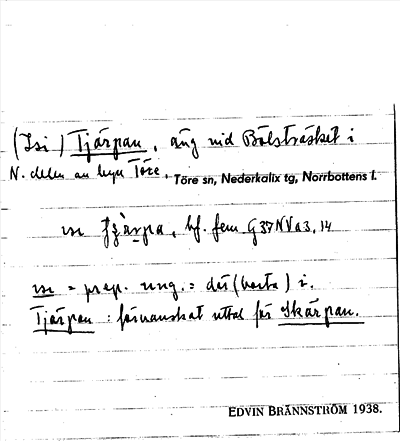 (Isi) Tjärpan, äng vid Bölsträsket i
N. delen av byn Töre. Töre sn, Nederkalix tg, Norrbottens l.
bf. fem G37NVa3,14
= prep. ung. = där (borta) i.
Tjärpan: försvenskat uttal för Skärpan.
EDVIN BRÄNNSTRÖM 1938.